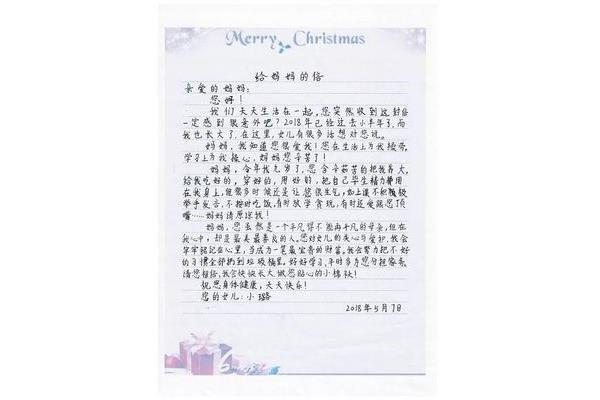 Merry Christmas
给妈妈的信
亲爱的妈妈：
您好！
我们天天生活在一起，您突然收到这封信
一定感到很意外吧？2018年已经过去小半年了，而
我也长大了，在这里，女儿有很多话想对您说。
妈妈，我知道您很爱我！您在生活上为我操劳，
学习上为我操心，妈妈您辛苦了！
妈妈，今年我九岁了，您含辛茹苦的把我养大，
给我吃好的，穿好的，用好的，把自己毕生精力费用
在我身上，但很多时候还是让您很生气，如上课不积极
举手发言，不按时吃饭，有时放学贪玩，有时还爱跟您顶
嘴……妈妈请原谅我！
妈妈，您虽然是一个平凡得不能再平凡的母亲，但在
我心中，却是最美最善良的人。您对女儿的关心与爱护，我会
牢牢铭记在心里，当成为一笔最宝贵的财富。我会努力把不好
的习惯全部扔到垃圾桶里，好好学习，平时多为您分担家务，
请您相信，我会快快长大，做您贴心的小棉袄！
祝您身体健康，天天快乐！
您的女儿：小璐
2018年5月7日